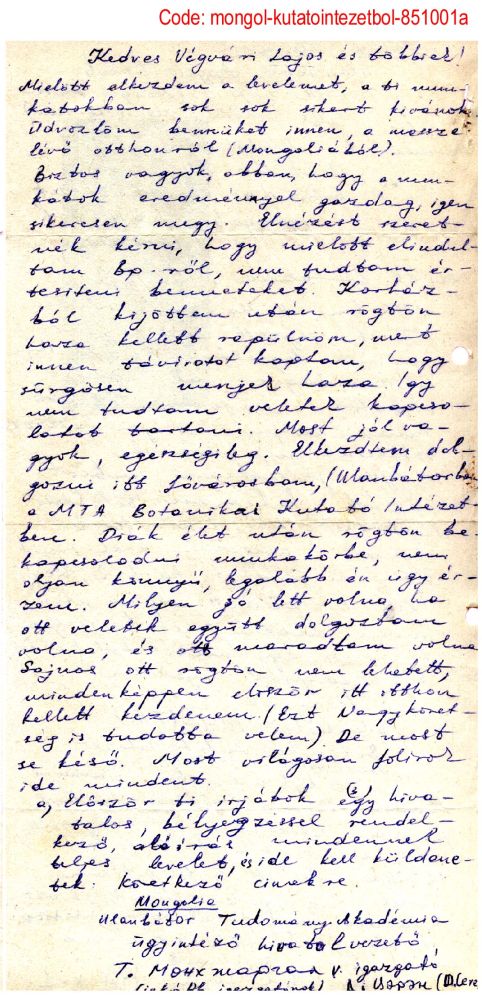 Code: mongol-kutatointezetbol-851001a
Kedves Végvári Lajos és többiek!
Mielőtt elkezdem a levelemet, a ti mun-
kátokban sok sok sikert kívánok
Üdvözlöm bennüket innen, a messze
lévő otthonról (Mongoliából).
Biztos vagyok, abban, hogy a mun-
kátok eredménnyel gazdag, igen
sikeresen megy. Elnézést szeret-
nék kérni, hogy mielőtt elindul-
tam Bp.-ről, nem tudtam ér-
tesiteni benneteket. Korház-
ból kijöttem után rögtön
haza kellett repülnöm, mert
innen táviratot kaptam, hogy
sürgősen menjek haza. Igy
nem tudtam veletek kapcso-
latot tartani. Most jól va-
gyok, egészségileg. Elkezdtem dol-
gozni itt fővárosban, (Ulanbátorban
a MTA Botanikai Kutató Intézet-
ben. Diák élet után rögtön be-
kapcsolodni munkakörbe, nem
oljan könnyű, legalább én úgy ér-
zem. Milyen jó lett volna ha
ott veletek együtt dolgoztam
volna, és ott maradtam volna
Sajnos ott rögtön nem lehetett,
mindenképpen először itt itthon
kellett kezdenem. (Ezt Nagykövet-
ség is tudatta velem). De most
se késő. Most világosan fölirok
ide mindent.
a, Először ti irjátok egy hiva-
talos, bélyegzéssel rendel-
kező, aláirás mindennel
teljes levelet, és ide kell küldene-
tek. Következő cimekre.
Mongolia
Ulanbátor Tudomány. Akadémia
ügyintéző hivatalvezető
Т. Монхжаргал v. igazgató